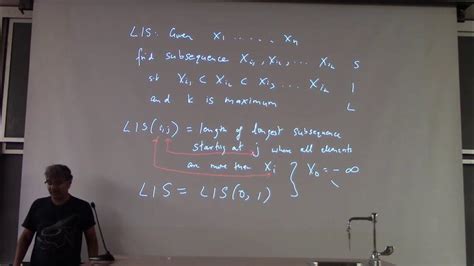 LIS: Given X₁ ..... Xₙ
find subsequence Xᵢ₁, Xᵢ₂, ... Xᵢₖ S
st Xᵢ₁ < Xᵢ₂ ... Xᵢₖ I
and k is maximum L
LIS(i,j) = length of longest subsequence
starting at j where all elements
are more than Xᵢ } X₀ = -∞
LIS = LIS(0, 1)